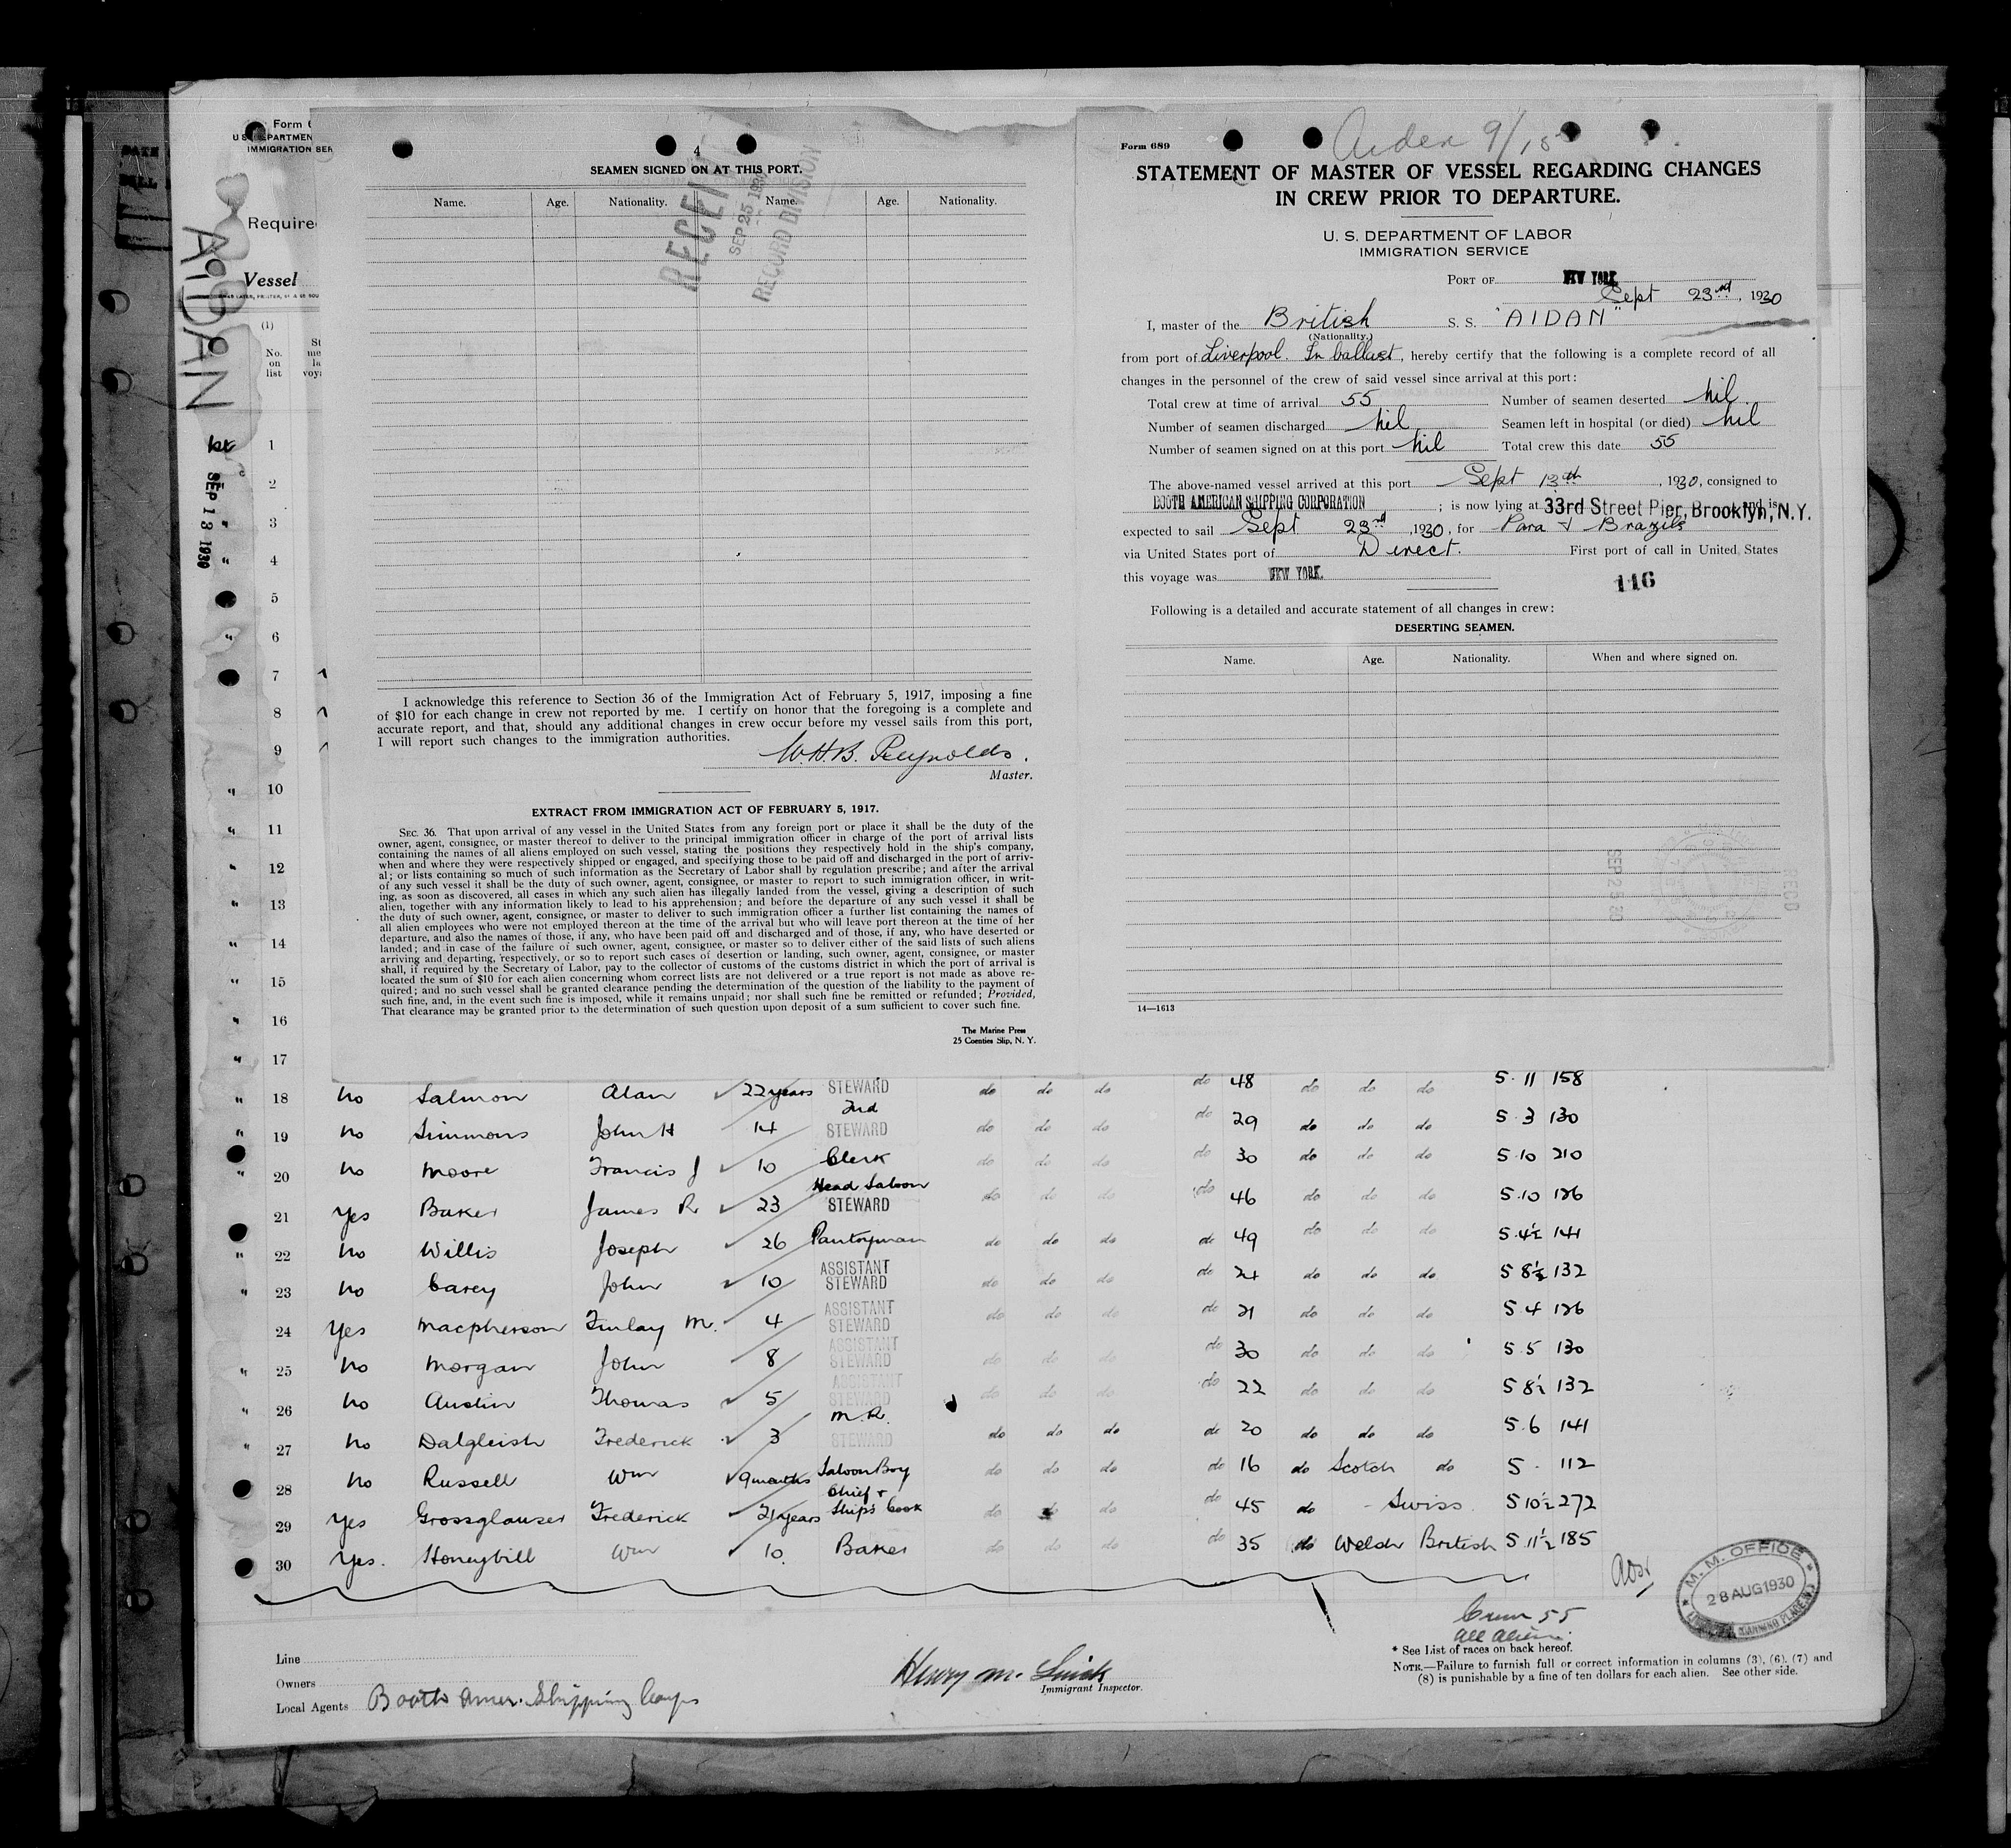 Form 6
U. S. DEPARTMEN
IMMIGRATION SER
Require
Vessel
AIDAN
(1)
No.
on
list
SEP 13 1930
1
2
3
4
5
6
7
8
9
10
11
12
13
14
15
16
17
4
SEAMEN SIGNED ON AT THIS PORT.
Name. Age. Nationality. Name. Age. Nationality.
RECEIVED
SEP 25 1930
RECORD DIVISION
I acknowledge this reference to Section 36 of the Immigration Act of February 5, 1917, imposing a fine
of $10 for each change in crew not reported by me. I certify on honor that the foregoing is a complete and
accurate report, and that, should any additional changes in crew occur before my vessel sails from this port,
I will report such changes to the immigration authorities.
W.H.B. Reynolds.
Master.
EXTRACT FROM IMMIGRATION ACT OF FEBRUARY 5, 1917.
SEC. 36. That upon arrival of any vessel in the United States from any foreign port or place it shall be the duty of the
owner, agent, consignee, or master thereof to deliver to the principal immigration officer in charge of the port of arrival lists
containing the names of all aliens employed on such vessel, stating the positions they respectively hold in the ship's company,
when and where they were respectively shipped or engaged, and specifying those to be paid off and discharged in the port of arriv-
al; or lists containing so much of such information as the Secretary of Labor shall by regulation prescribe; and after the arrival
of any such vessel it shall be the duty of such owner, agent, consignee, or master to report to such immigration officer, in writ-
ing, as soon as discovered, all cases in which any such alien has illegally landed from the vessel, giving a description of such
alien, together with any information likely to lead to his apprehension; and before the departure of any such vessel it shall be
the duty of such owner, agent, consignee, or master to deliver to such immigration officer a further list containing the names of
all alien employees who were not employed thereon at the time of the arrival but who will leave port thereon at the time of her
departure, and also the names of those, if any, who have been paid off and discharged and of those, if any, who have deserted or
landed; and in case of the failure of such owner, agent, consignee, or master so to deliver either of the said lists of such aliens
arriving and departing, respectively, or so to report such cases of desertion or landing, such owner, agent, consignee, or master
shall, if required by the Secretary of Labor, pay to the collector of customs of the customs district in which the port of arrival is
located the sum of $10 for each alien concerning whom correct lists are not delivered or a true report is not made as above re-
quired; and no such vessel shall be granted clearance pending the determination of the question of the liability to the payment of
such fine, and, in the event such fine is imposed, while it remains unpaid; nor shall such fine be remitted or refunded; Provided,
That clearance may be granted prior to the determination of such question upon deposit of a sum sufficient to cover such fine.
The Marine Press
25 Coenties Slip, N. Y.
Form 689
STATEMENT OF MASTER OF VESSEL REGARDING CHANGES
IN CREW PRIOR TO DEPARTURE.
U. S. DEPARTMENT OF LABOR
IMMIGRATION SERVICE
PORT OF NEW YORK
Sept 23rd, 1930
I, master of the British S. S. "AIDAN"
(Nationality.)
from port of Liverpool. In ballast, hereby certify that the following is a complete record of all
changes in the personnel of the crew of said vessel since arrival at this port:
Total crew at time of arrival 55 Number of seamen deserted nil
Number of seamen discharged nil Seamen left in hospital (or died) nil
Number of seamen signed on at this port nil Total crew this date 55
The above-named vessel arrived at this port Sept 13th, 1930, consigned to
BOOTH AMERICAN SHIPPING CORPORATION; is now lying at 33rd Street Pier, Brooklyn, N.Y. and is
expected to sail Sept 23rd, 1930, for Para & Brazils
via United States port of Direct. First port of call in United States
this voyage was NEW YORK.
116
Following is a detailed and accurate statement of all changes in crew:
DESERTING SEAMEN.
Name. Age. Nationality. When and where signed on.
SEP 25 30
REC'D
14—1613
18 no Salmon Alan 22 years STEWARD do do do do 48 do do do 5.11 158
19 no Simmons John H 14 2nd STEWARD do do do do 29 do do do 5 3 130
20 no Moore Francis J 10 Clerk do do do do 30 do do do 5.10 210
21 Yes Baker James R 23 Head Saloon STEWARD do do do do 46 do do do 5.10 126
22 no Willis Joseph 26 Pantryman do do do do 49 do do do 5.4½ 141
23 no Carey John 10 ASSISTANT STEWARD do do do do 24 do do do 5 8½ 132
24 Yes Macpherson Finlay M. 4 ASSISTANT STEWARD do do do do 21 do do do 5 4 126
25 no Morgan John 8 ASSISTANT STEWARD do do do do 30 do do do 5.5 130
26 no Austin Thomas 5 ASSISTANT STEWARD do do do do 22 do do do 5 8½ 132
27 no Dalgleish Frederick 3 M.R. STEWARD do do do do 20 do do do 5.6 141
28 no Russell Wm 9 months Saloon Boy do do do do 16 do Scotch do 5. 112
29 Yes Grossglauser Frederick 21 years Chief & Ships Cook do do do do 45 do Swiss 5 10½ 272
30 Yes. Honeybill Wm 10. Baker do do do do 35 do Welsh British 5 11½ 185
M. M. OFFICE
28 AUG 1930
Crew 55
all aliens.
* See List of races on back hereof.
NOTE.—Failure to furnish full or correct information in columns (3), (6), (7) and
(8) is punishable by a fine of ten dollars for each alien. See other side.
Line
Owners
Local Agents Booth Amer. Shipping Corpn
Immigrant Inspector.